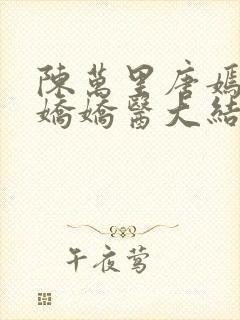 陳萬里唐嫣
嬌嬌醫大結
午夜莺